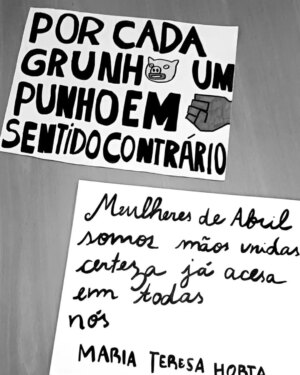 POR CADA
GRUNHO UM
PUNHO EM
SENTIDO CONTRÁRIO
Mulheres de Abril
somos mãos unidas
certeza já acesa
em todas
nós
MARIA TERESA HORTA